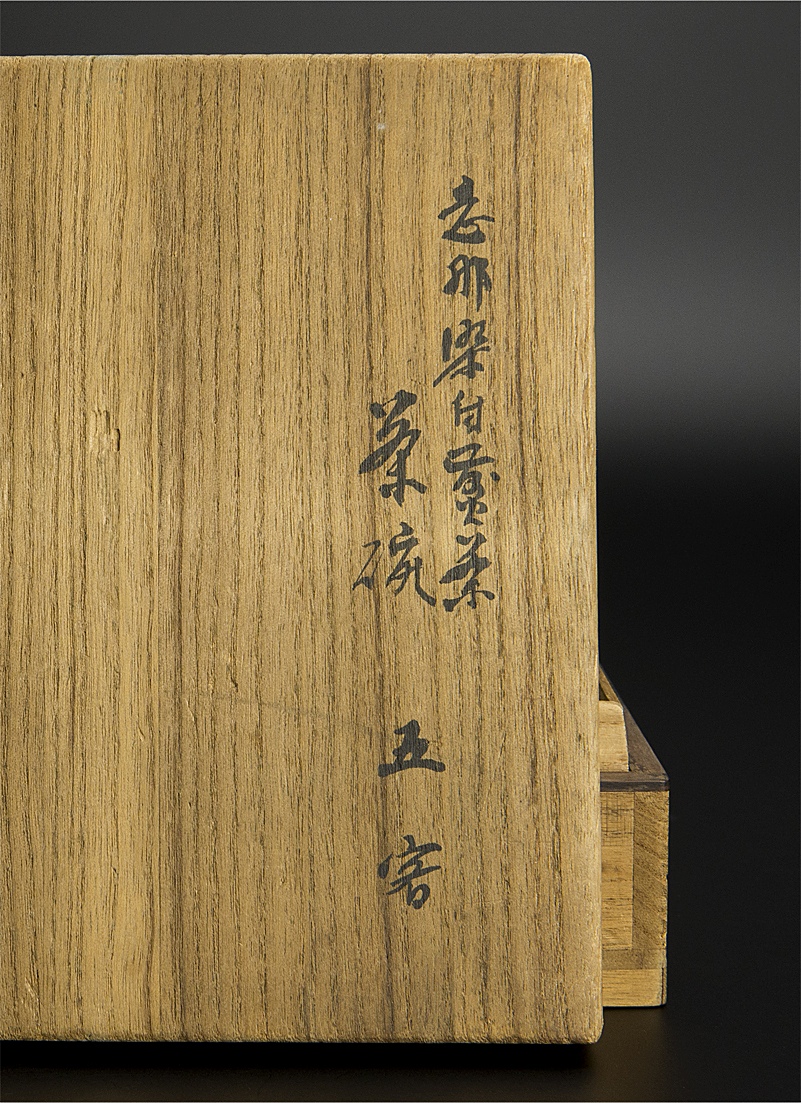 志那染付煎茶
茶碗 五客